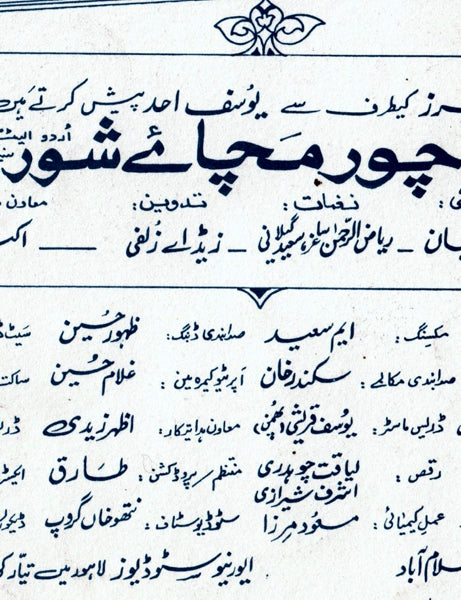 رز کیطرف سے یوسف احد پیش کرتے ہیں
چور مچائے شور اردو
نغمات: تدوین: معاون
ریاض الرحمٰن ساغر، سعید گیلانی – زیڈ اے زلفی — اک
مکسنگ: ایم سعید صدابندی ڈبنگ: ظہور حسین
صدابندی مکالمے: سکندر خان آپریٹو کیمرہ مین: غلام حسین
ڈریس ماسٹر: یوسف قریشی (بھمن) معاون ہدایتکار: اظہر زیدی
رقص: لیاقت چوہدری منتظم پروڈکشن: طارق
اشرف شیرازی
عمل کیمیائی: مسعود مرزا سٹوڈیو سٹاف: نتھو خاں گروپ
سلام آباد ایورنیو سٹوڈیوز لاہور میں تیار